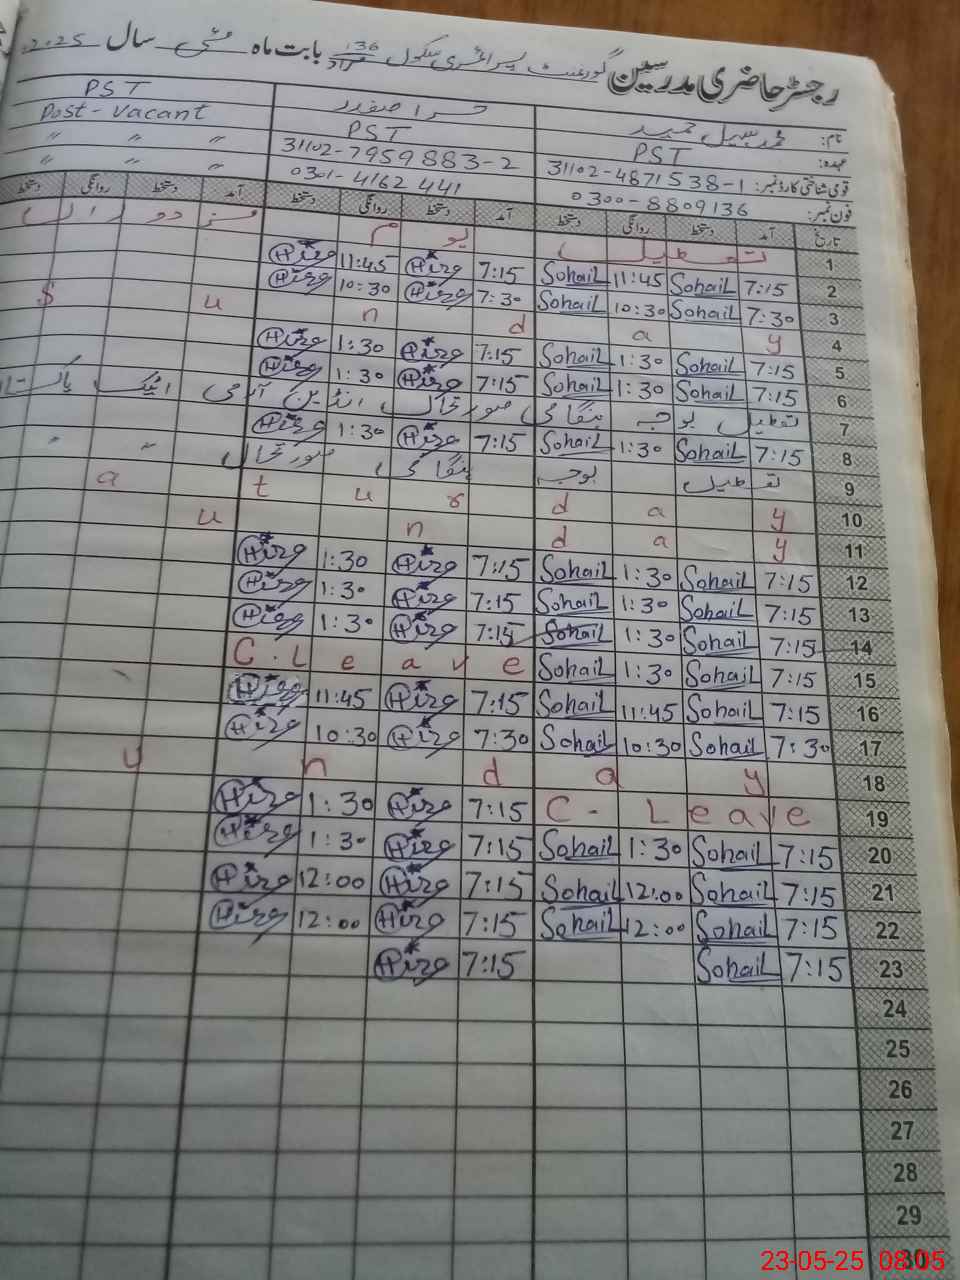 رجسٹر حاضری مدرسین گورنمنٹ پرائمری سکول 136 مراد بابت ماہ مئی سال 2025
نام: محمد سہیل حمید حرا صفدر PST
عہدہ: PST PST Post-Vacant
قومی شناختی کارڈ نمبر: 31102-4871538-1 31102-7959883-2 " " "
فون نمبر: 0300-8809136 0301-4162441 " " "
تاریخ آمد دستخط روانگی دستخط آمد دستخط روانگی دستخط آمد دستخط روانگی دستخط
1 تعطیل یوم مزدوراں
2 7:15 Sohail 11:45 Sohail 7:15 Hira 11:45 Hira
3 7:30 Sohail 10:30 Sohail 7:30 Hira 10:30 Hira
4 S u n d a y
5 7:15 Sohail 1:30 Sohail 7:15 Hira 1:30 Hira
6 7:15 Sohail 1:30 Sohail 7:15 Hira 1:30 Hira
7 تعطیل بوجہ ہنگامی صورتحال انڈین آرمی اٹیک پاکستان
8 7:15 Sohail 1:30 Sohail 7:15 Hira 1:30 Hira
9 تعطیل بوجہ ہنگامی صورتحال " "
10 a t u r d a y
11 u n d a y
12 7:15 Sohail 1:30 Sohail 7:15 Hira 1:30 Hira
13 7:15 Sohail 1:30 Sohail 7:15 Hira 1:30 Hira
14 7:15 Sohail 1:30 Sohail 7:15 Hira 1:30 Hira
15 7:15 Sohail 1:30 Sohail C.Leave
16 7:15 Sohail 11:45 Sohail 7:15 Hira 11:45 Hira
17 7:30 Sohail 10:30 Sohail 7:30 Hira 10:30 Hira
18 u n d a y
19 C-Leave 7:15 Hira 1:30 Hira
20 7:15 Sohail 1:30 Sohail 7:15 Hira 1:30 Hira
21 7:15 Sohail 12:00 Sohail 7:15 Hira 12:00 Hira
22 7:15 Sohail 12:00 Sohail 7:15 Hira 12:00 Hira
23 7:15 Sohail 7:15 Hira
24
25
26
27
28
29
30
23-05-25 08:05